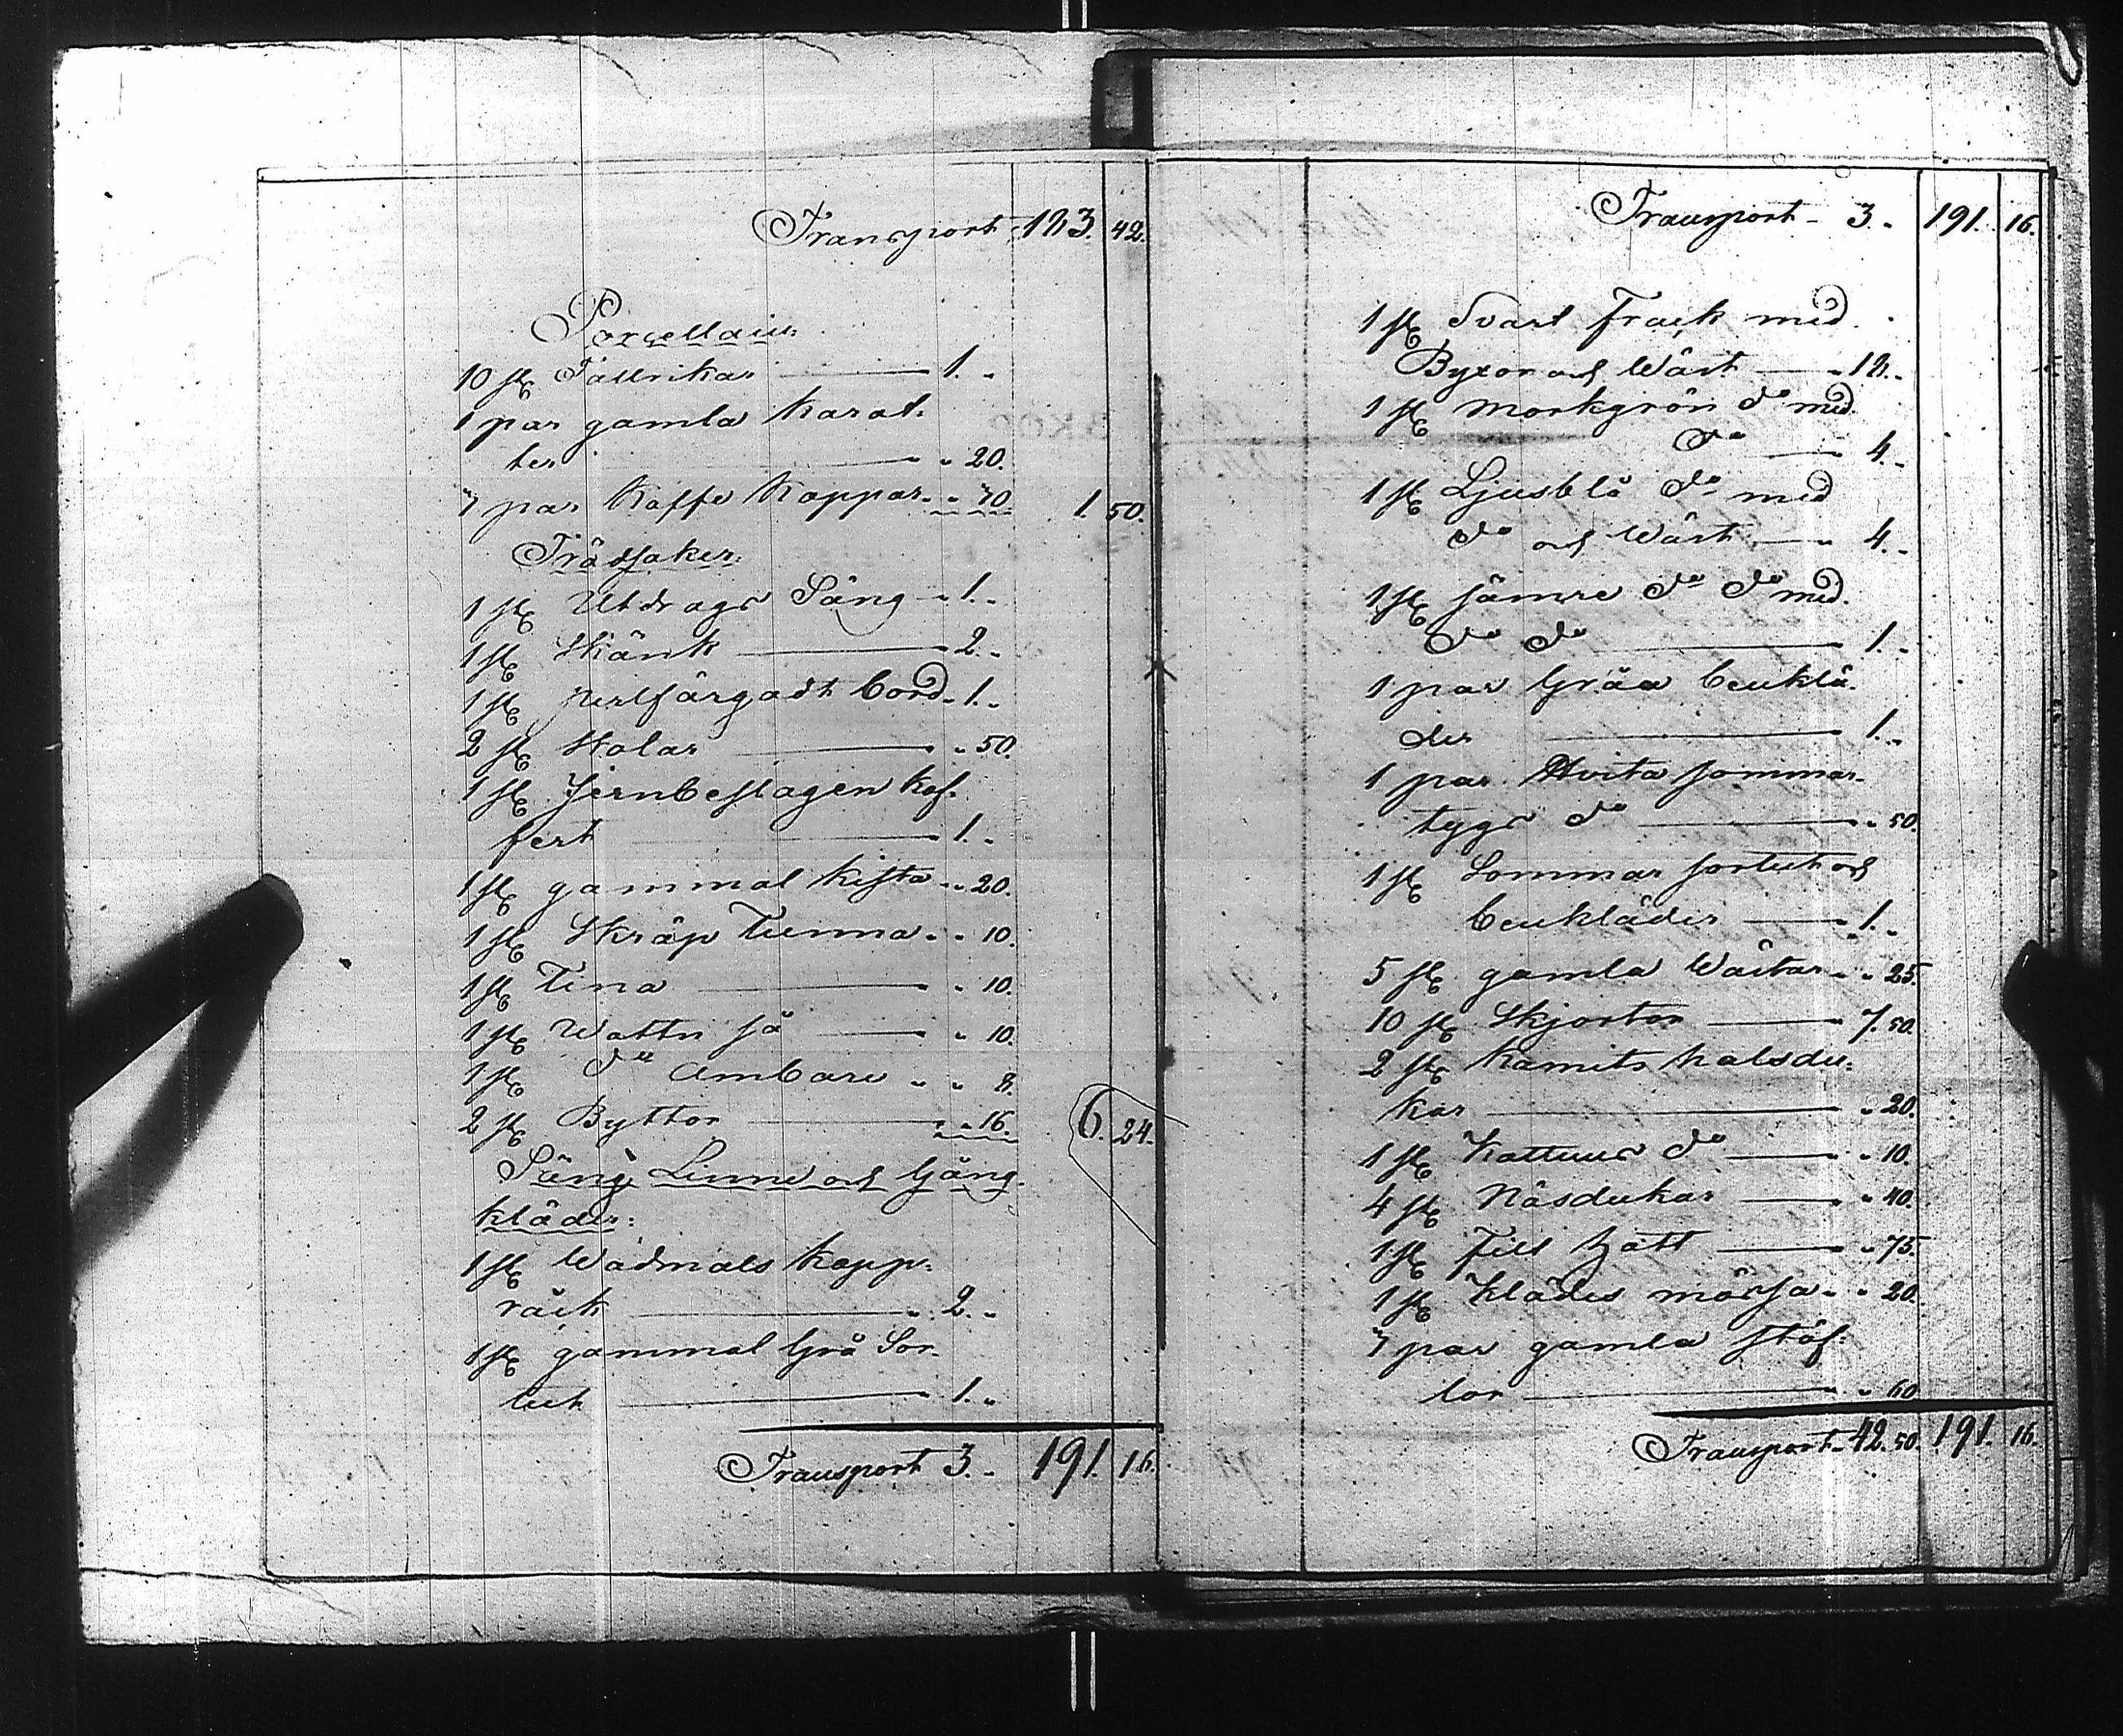 Transport 183. 42.
Porcellain:
10 st Tallrikar 1. "
1 par gamla Karaf:
ter " 20.
7 par Kaffe Koppar " 30.
1. 50.
Trädsaker:
1 st Utdrags Säng " 1. "
1 st Skänk 2. "
1 st perlfärgadt bord 1. "
2 st Stolar " 50.
1 st Jernbeslagen Kof:
fert 1. "
1 st gammal Kista " 20.
1 st Skräp Tunna " 10.
1 st Tina " 10.
1 st Wattn så " 10.
1 st do Ambare " 8.
2 st Byttor " 16.
6. 24.
Säng, Linne och Gång
kläder:
1 st Wadmals Kapp:
räck " 2. "
1 st gammal Grå Sur:
tut 1. "
Transport 3. " 191. 16.
Transport 3. " 191. 16.
1 st Svart Frack med
Byxor och Wäst 18. "
1 st Morkgrön do med
do 4. "
1 st Ljusblå do med
do och Wäst 4. "
1 st sämre do do med
do do 1. "
1 par Gråa benklä:
der 1. "
1 par Hvita sommar
tygs do " 50.
1 st Sommar sortut och
benkläder 1. "
5 st gamla Wästar " 25.
10 st Skjortor 7. 50.
2 st Kamits halsdu:
kar " 20.
1 st Kattuns do " 10.
4 st Näsdukar " 40.
1 st Filt hatt " 75.
1 st Klädes mössa " 20.
7 par gamla stöf:
lor " 60.
Transport 42. 50. 191. 16.